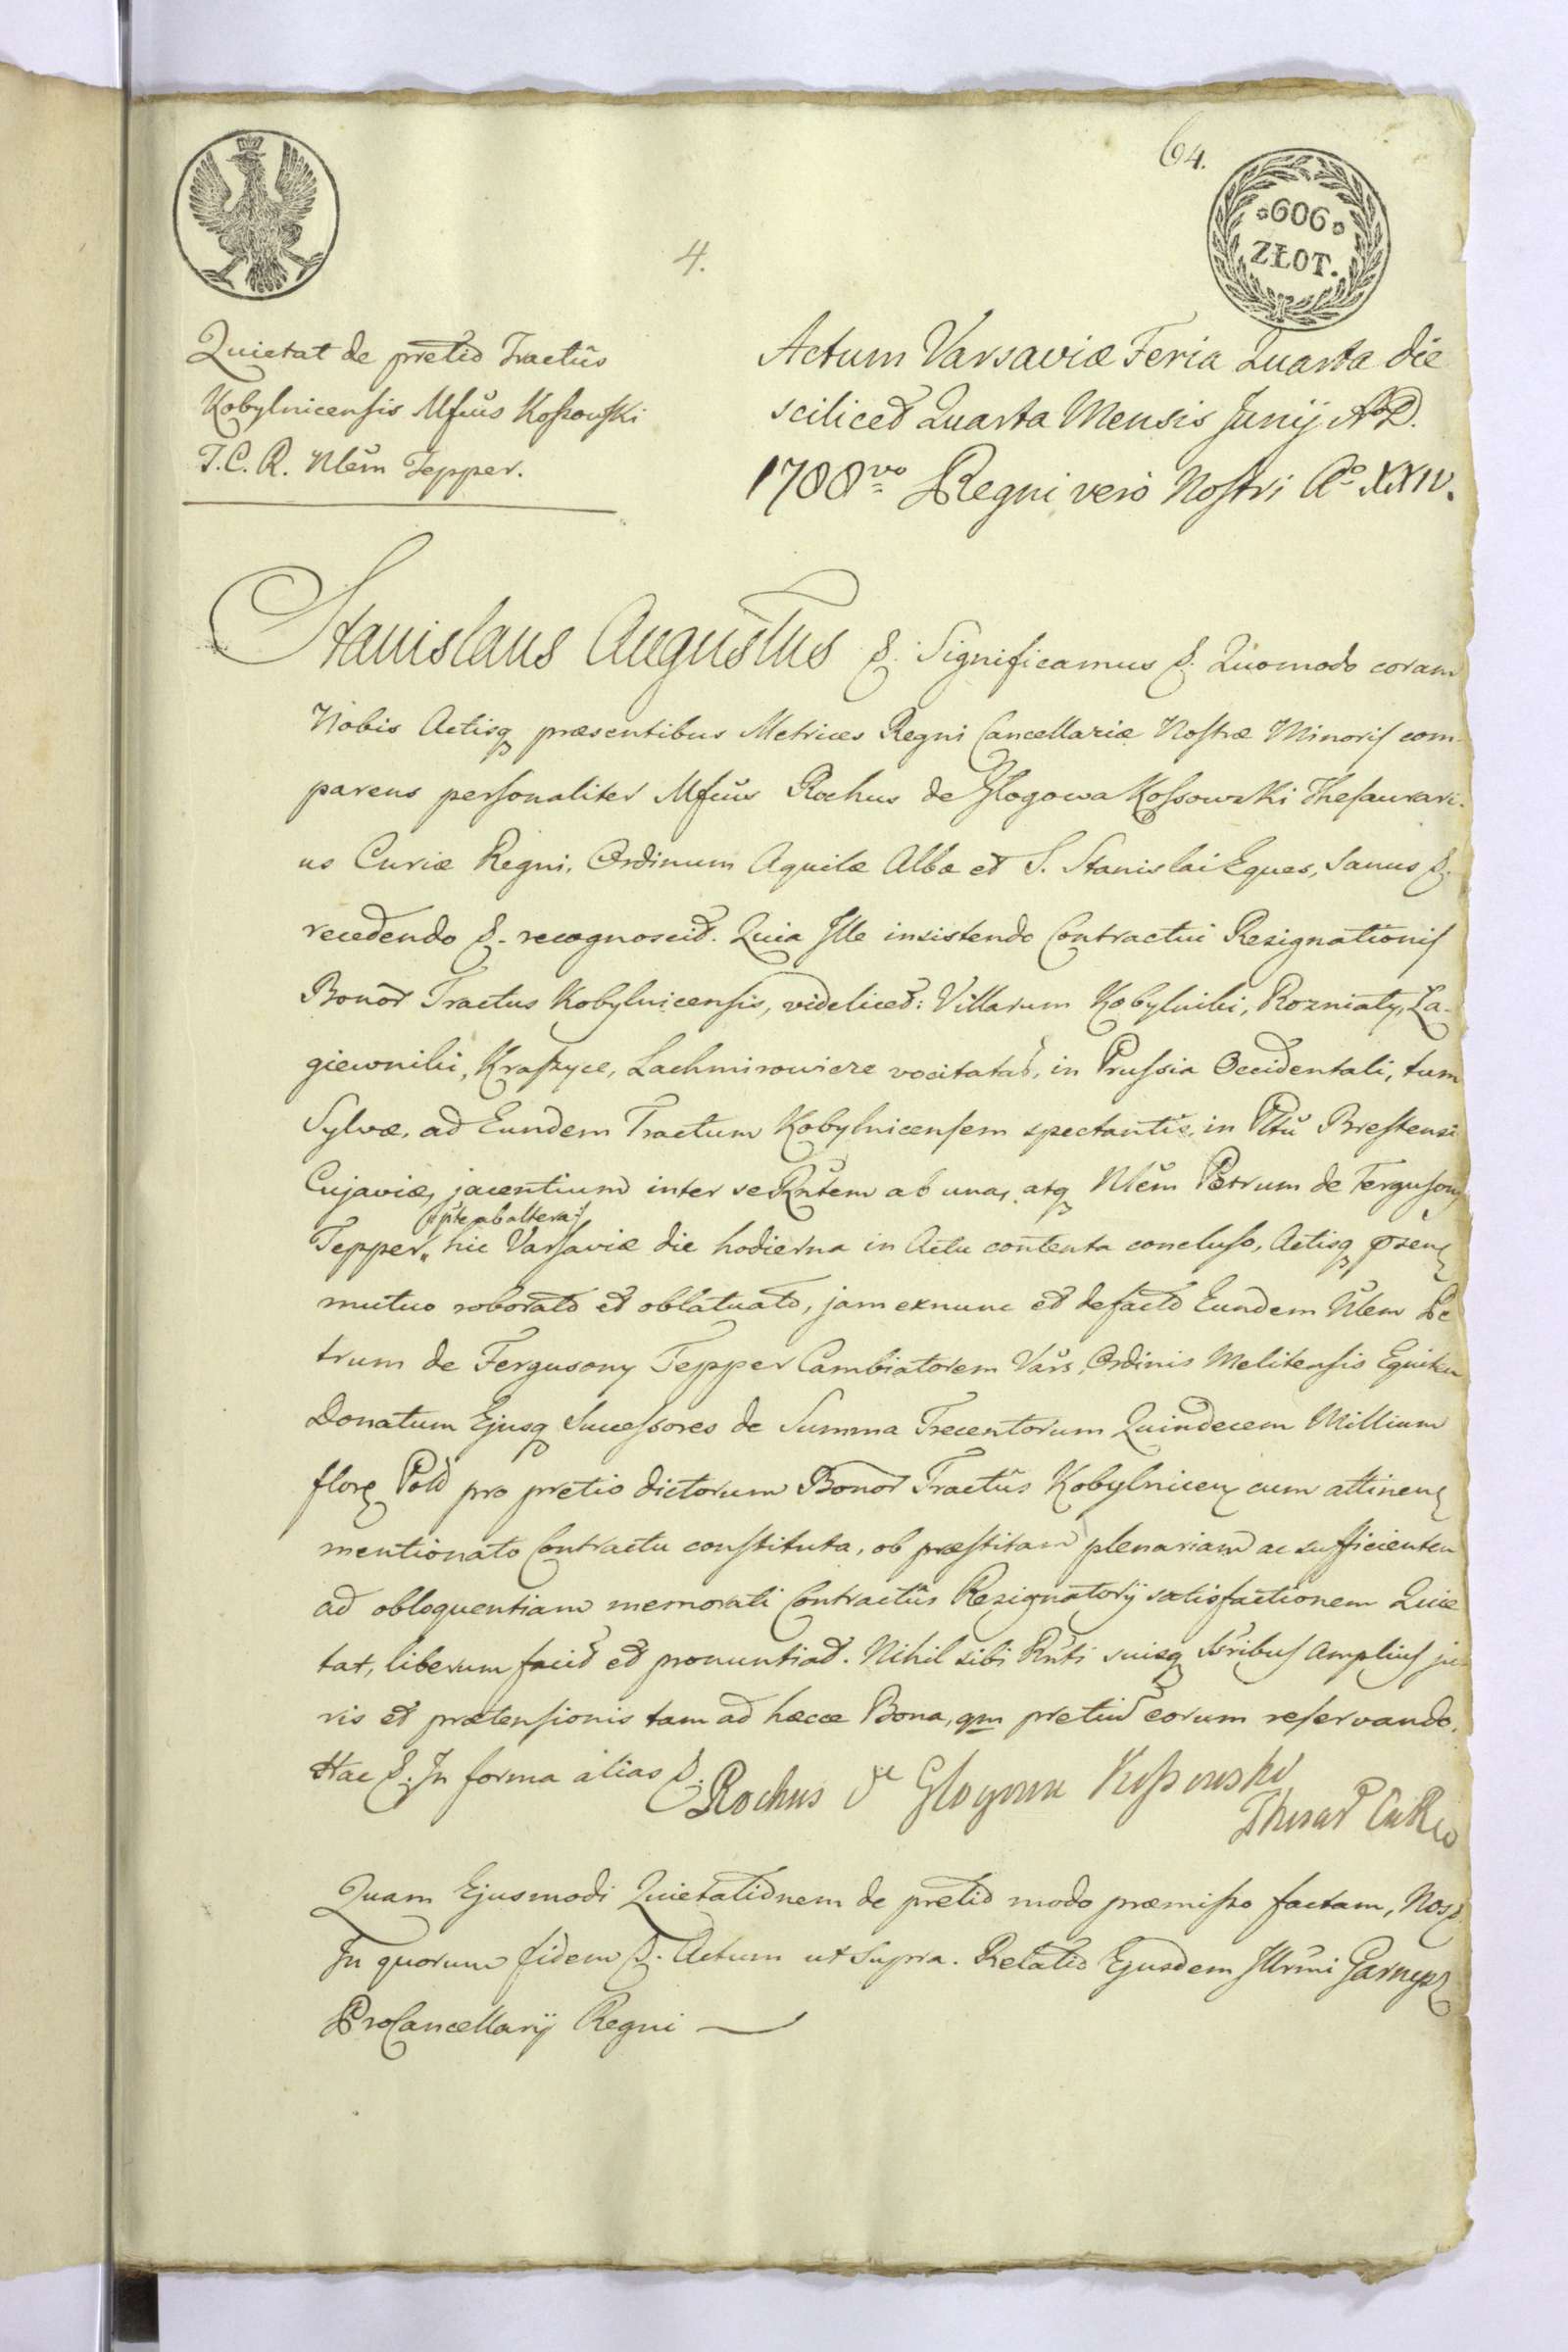 64.
606
ZŁOT.
4.
Quietat de pretio Tractûs
Kobylnicensis Mfcus Koßowski
T. C. R. Nlem Tepper.
Actum Varsaviæ Feria Quarta die
scilicet Quarta Mensis Junij A° D.
1788vo Regni vero Nostri A° XXIV.
Stanislaus Augustus &. Significamus &. Quomodo coram
Nobis Actisq præsentibus Metrices Regni Cancellariæ Nostræ Minoris com-
parens personaliter Mfcus Rochus de Glogowa Kossowski Thesaurari-
us Curiæ Regni, Ordinum Aquilæ Albæ et S. Stanislai Eques, sanus &.
recedendo &. recognoscit. Quia Ille insistendo Contractui Resignationis
Bonor Tractus Kobylnicensis, videlicet: Villarum Kobylniki, Rozniaty, La-
giewniki, Kraszyce, Lachmirowicze vocitatar, in Prussia Occidentali, tum
Sylvæ, ad Eundem Tractum Kobylnicensem spectantis, in Pttu Brestensi
Cujaviæ, jacentium inter se Rntem ab una, atq Nlem Petrum de Fergusony
pte ab altera
Tepper, hic Varsaviæ die hodierna in Actu contenta concluso, Actisq præn
mutuo roborato et oblatuato, jam exnunc et de facto Eundem Nlem Pe
trum de Fergusony Tepper Cambiatorem Vars, Ordinis Melitensis Equitem
Donatum Ejusq Successores de Summa Trecentorum Quindecem Millium
flor Pol pro pretio dictorum Bonor Tractûs Kobylnicen cum attinen
mentionato Contractu constituta, ob præstitam plenariam ac sufficientem
ad obloquentiam memorati Contractûs Resignatorij satisfactionem Quie
tat, liberum facit et pronuntiat. Nihil sibi Rnti suisq Ssribus amplius ju
ris et prætensionis tam ad hæcce Bona, qm pretium eorum reservando.
Hac &. In forma alias &.
Rochus de Glogowa Koßowski
Thesar Cu Reg
Quam Ejusmodi Quietationem de pretio modo præmisso factam, Nos &.
In quorum fidem &. Actum ut supra. Relatio Ejusdem Illrmi Garnysz
ProCancellarij Regni